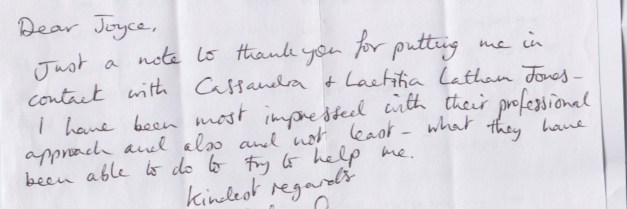 Dear Joyce,
Just a note to thank you for putting me in
contact with Cassandra + Laetitia Latham Jones -
I have been most impressed with their professional
approach and also and not least - what they have
been able to do to try to help me.
Kindest regards